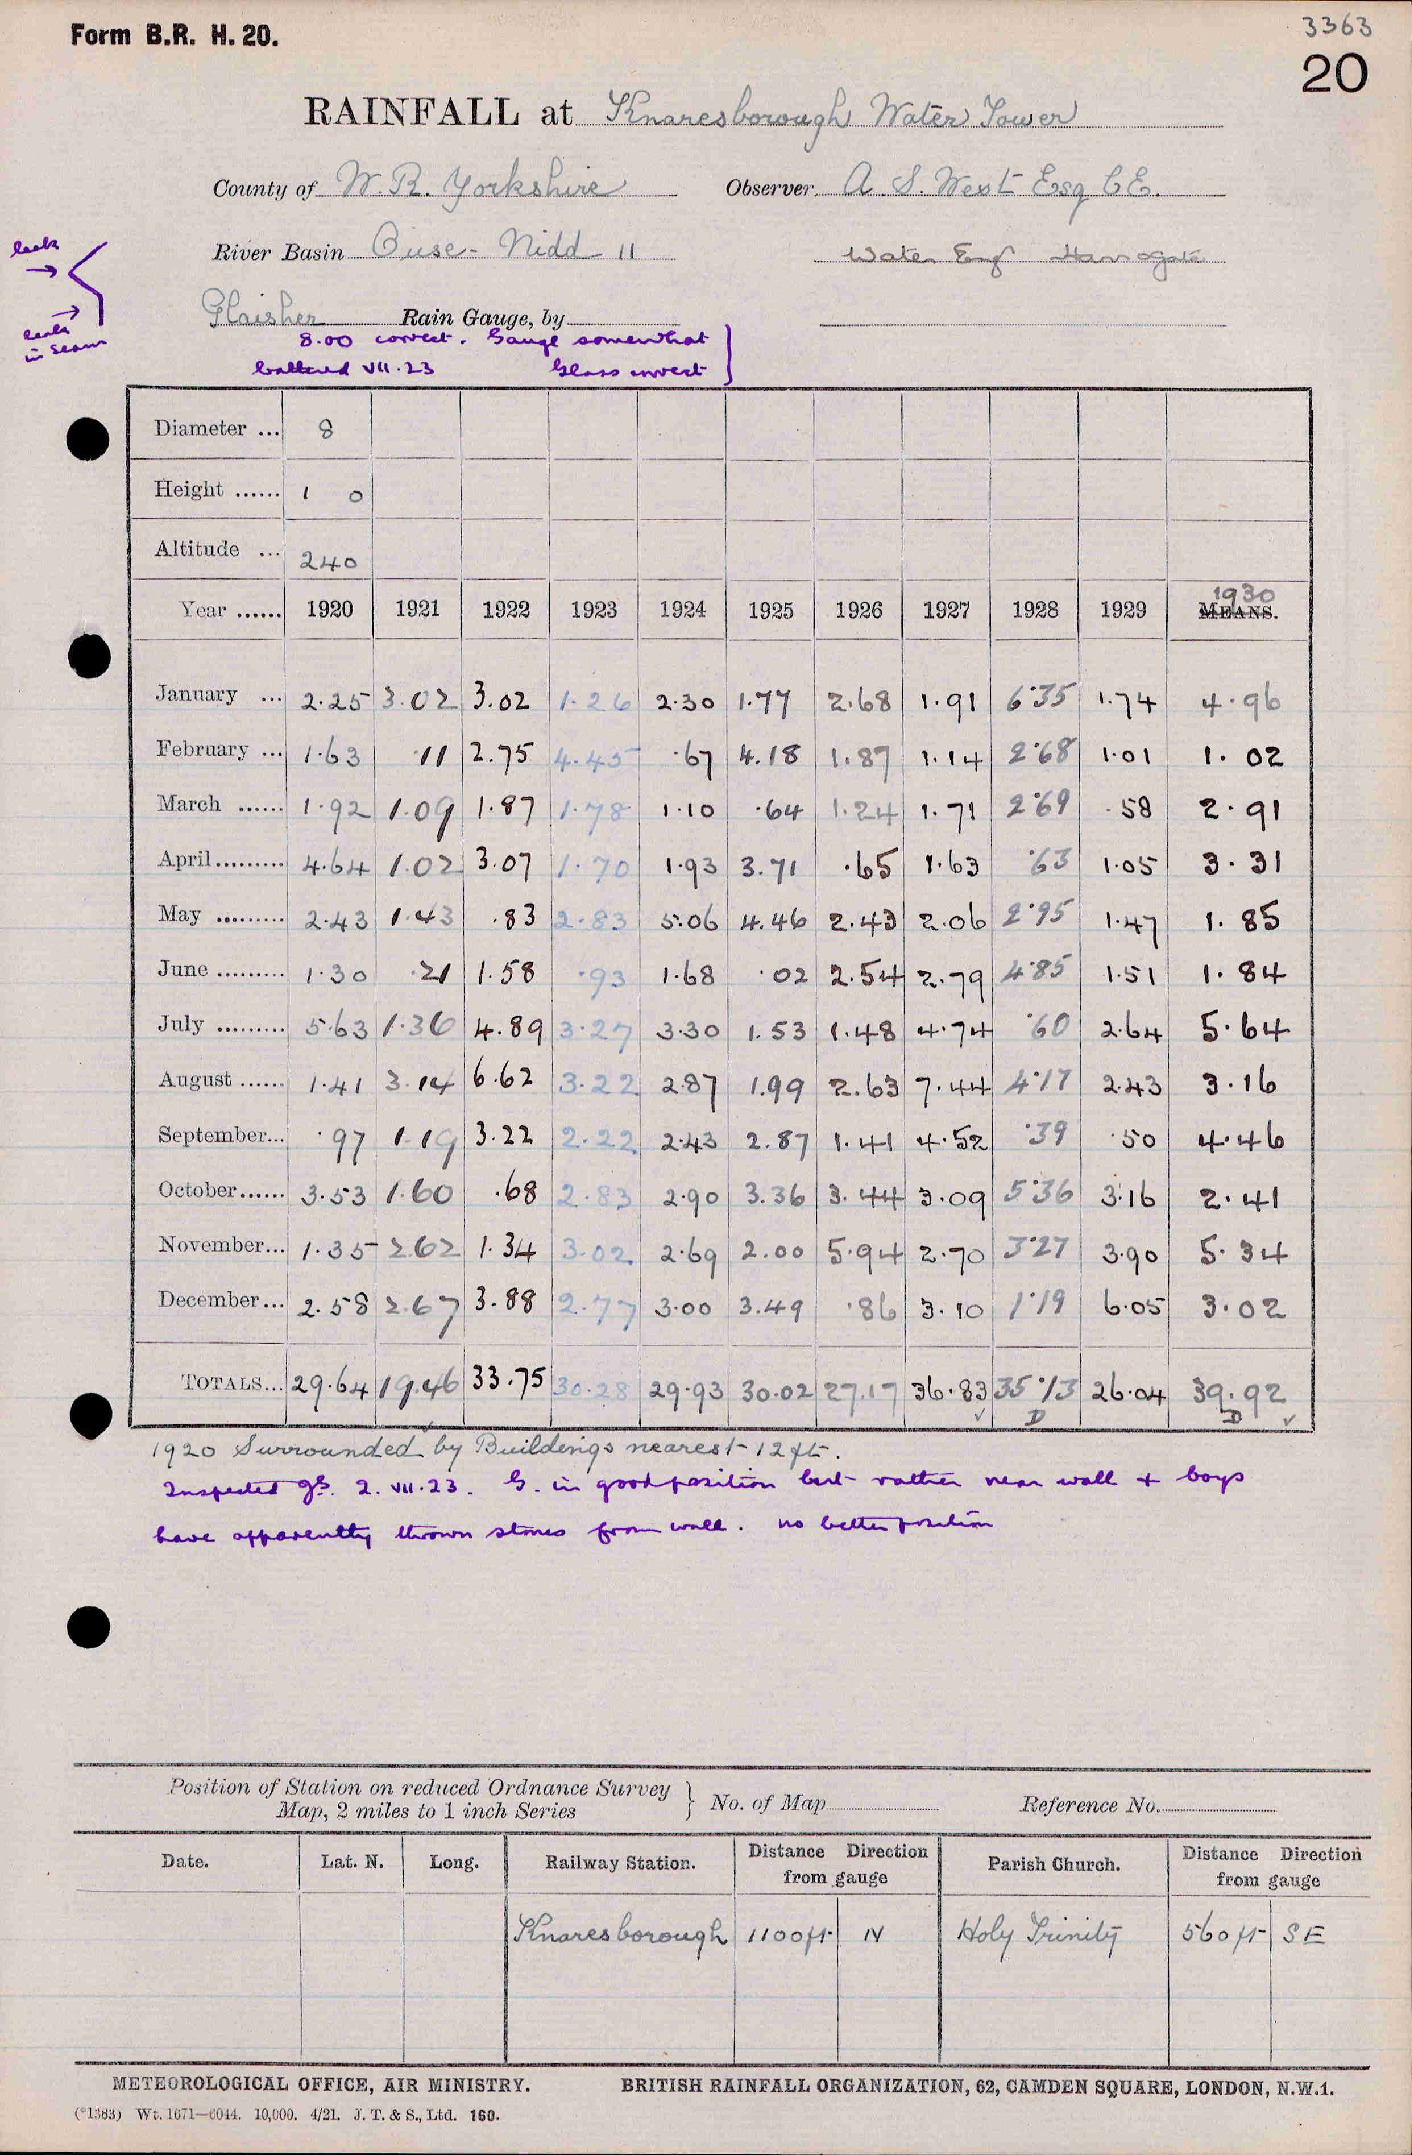 Form B.R. H. 20.
3363
20
RAINFALL at Knaresborough Water Tower
County of W. R. Yorkshire Observer. A. S. West Esq C.E.
River Basin Ouse - Nidd 11 Water Engr Harrogate
leak
leak
in seam
Glaisher Rain Gauge, by
8.00 correct. Gauge somewhat
battered VII.23 Glass correct
Diameter ... 8
Height ...... 1 0
Altitude ... 240
Year ...... 1920 1921 1922 1923 1924 1925 1926 1927 1928 1929 1930 MEANS.
January ... 2.25 3.02 3.02 1.26 2.30 1.77 2.68 1.91 6.35 1.74 4.96
February ... 1.63 .11 2.75 4.45 .67 4.18 1.87 1.14 2.68 1.01 1.02
March ...... 1.92 1.09 1.87 1.78 1.10 .64 1.24 1.71 2.69 .58 2.91
April......... 4.64 1.02 3.07 1.70 1.93 3.71 .65 1.63 .63 1.05 3.31
May ......... 2.43 1.43 .83 2.83 5.06 4.46 2.43 2.06 2.95 1.47 1.85
June ......... 1.30 .21 1.58 .93 1.68 .02 2.54 2.79 4.85 1.51 1.84
July ......... 5.63 1.36 4.89 3.27 3.30 1.53 1.48 4.74 .60 2.64 5.64
August ...... 1.41 3.14 6.62 3.22 2.87 1.99 2.63 7.44 4.17 2.43 3.16
September... .97 1.19 3.22 2.22 2.43 2.87 1.41 4.52 .39 .50 4.46
October...... 3.53 1.60 .68 2.83 2.90 3.36 3.44 3.09 5.36 3.16 2.41
November... 1.35 2.62 1.34 3.02 2.69 2.00 5.94 2.70 3.27 3.90 5.34
December... 2.58 2.67 3.88 2.77 3.00 3.49 .86 3.10 1.19 6.05 3.02
TOTALS... 29.64 19.46 33.75 30.28 29.93 30.02 27.17 36.83 35.13 26.04 39.92
D D
1920 Surrounded by Buildings nearest 12 ft.
Inspected 2.VII.23. G. in good position but rather near wall + boys
have apparently thrown stones from wall. no better position
Position of Station on reduced Ordnance Survey
Map, 2 miles to 1 inch Series } No. of Map Reference No.
Date. Lat. N. Long. Railway Station. Distance Direction from gauge Parish Church. Distance Direction from gauge
Knaresborough 1100 ft N Holy Trinity 560 ft SE
METEOROLOGICAL OFFICE, AIR MINISTRY. BRITISH RAINFALL ORGANIZATION, 62, CAMDEN SQUARE, LONDON, N.W.1.
(*1383) Wt. 1671—6044. 10,000. 4/21. J. T. & S., Ltd. 160.